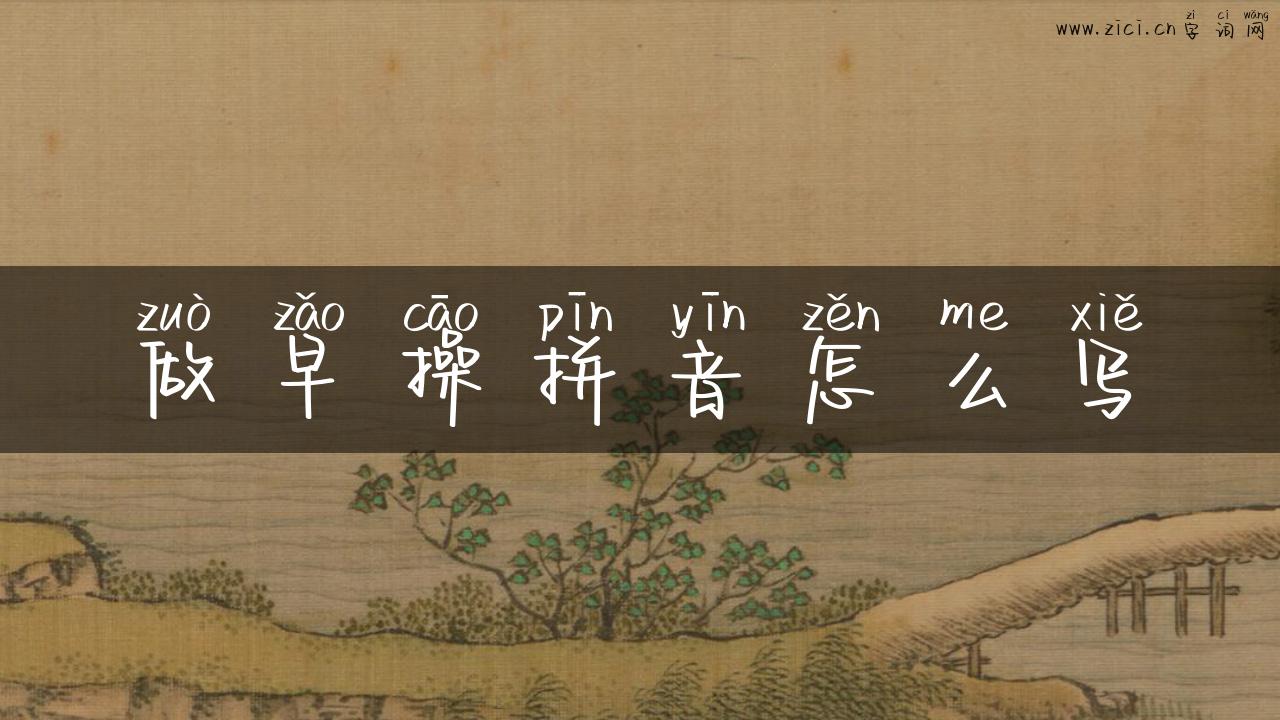 zì cí wǎng
www.zici.cn 字词网
zuò zǎo cāo pīn yīn zěn me xiě
做早操拼音怎么写